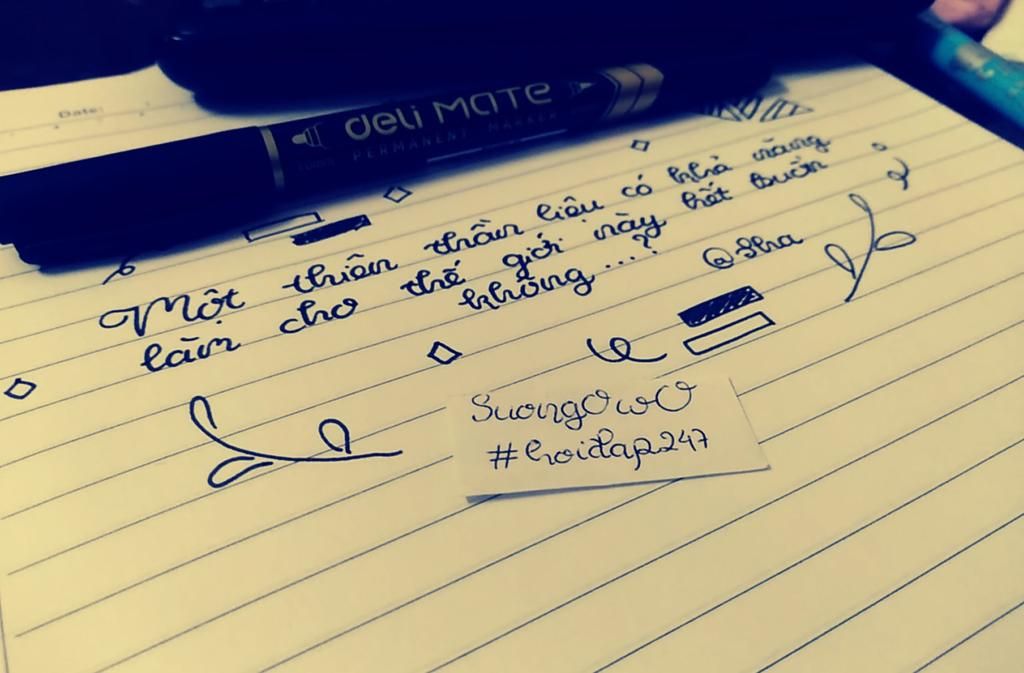 Date:
deli MATE
PERMANENT MARKER
Một thiên thần liệu có khả năng
làm cho thế giới này hết buồn
không ...?
@Sha
SuongOwO
#hoidap247